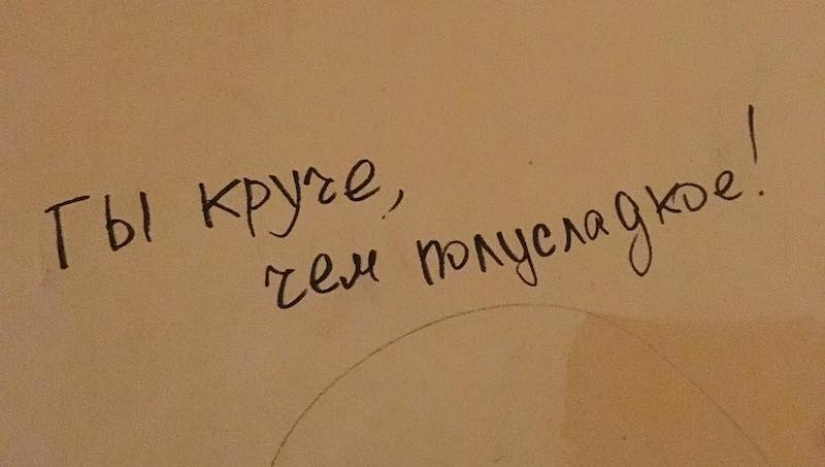 Ты круче,
чем полусладкое!